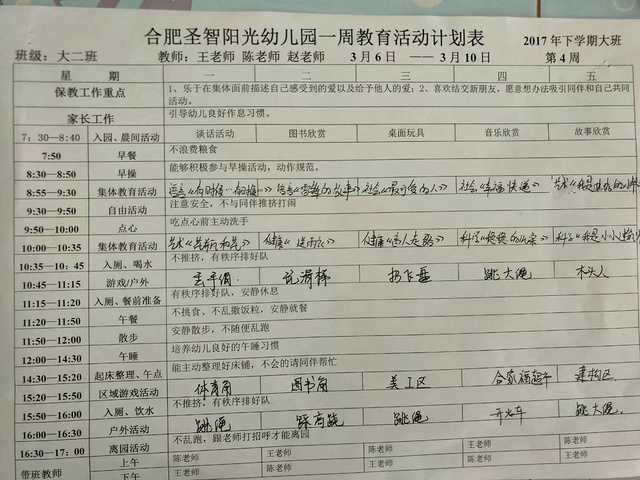 合肥圣智阳光幼儿园一周教育活动计划表
2017年下学期大班
班级：大二班 教师：王老师 陈老师 赵老师 3月6日 ——3月10日 第4周
星 期 一 二 三 四 五
保教工作重点 1、乐于在集体面前描述自己感受到的爱以及给予他人的爱；2、喜欢结交新朋友，愿意想办法吸引同伴和自己共同活动。
家长工作 引导幼儿良好作息习惯。
7：30—8:40 入园、晨间活动 谈话活动 图书欣赏 桌面玩具 音乐欣赏 故事欣赏
7:50 早餐 不浪费粮食
8:30—8:50 早操 能够积极参与早操活动，动作规范。
8:55—9:30 集体教育活动 社会《幸福快递》
9:30—9:50 自由活动 注意安全，不与同伴推挤打闹
9:50—10:00 点心 吃点心前主动洗手
10:00—10:35 集体教育活动 健康《盲人走路》
10:35—10：45 入厕、喝水 不推挤，有秩序排好队
10:45—11:15 游戏/户外 丢手绢 玩滑梯 扔飞盘 跳大绳 木头人
11:15—11:20 入厕、餐前准备 有秩序排好队，安静休息
11:20—11:50 午餐 不挑食、不乱撒饭粒，安静就餐
11:50—12:00 散步 安静散步，不随便乱跑
12:00—14:30 午睡 培养幼儿良好的午睡习惯
14:30—15:20 起床整理、午点 能主动整理好床铺，不会的请同伴帮忙
15:20—15:50 区域游戏活动 体育角 图书角 美工区 合家福超市 建构区
15:50—16:00 入厕、饮水 不推挤，有秩序排好队
16:00—16:30 户外活动 跳绳 踩高跷 跳绳 开火车 跳大绳
16:30—17:00 离园活动 不乱跑，跟老师打招呼才能离园
带班教师 上午 陈老师 王老师 陈老师 王老师 陈老师
下午 王老师 陈老师 王老师 陈老师 王老师